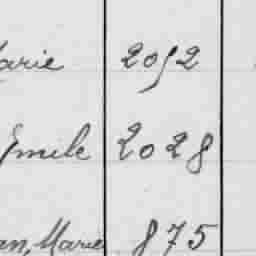 Marie 2092
Emile 2028
an, Marie 875